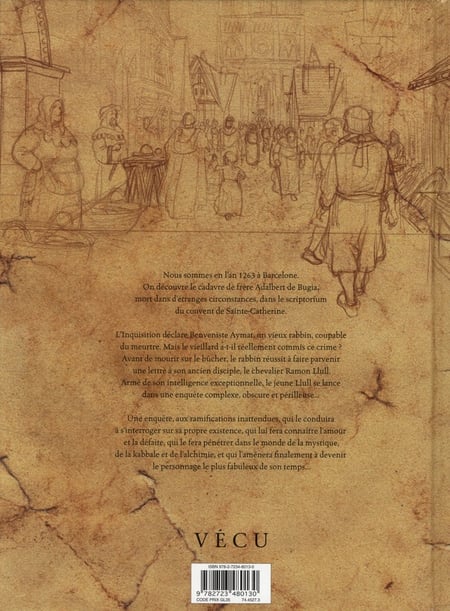 Nous sommes en l'an 1263 à Barcelone.
On découvre le cadavre de frère Adalbert de Bugia,
mort dans d'étranges circonstances, dans le scriptorium
du couvent de Sainte-Catherine.
L'Inquisition déclare Benveniste Aymat, un vieux rabbin, coupable
du meurtre. Mais le vieillard a-t-il réellement commis ce crime ?
Avant de mourir sur le bûcher, le rabbin réussit à faire parvenir
une lettre à son ancien disciple, le chevalier Ramon Llull.
Armé de son intelligence exceptionnelle, le jeune Llull se lance
dans une enquête complexe, obscure et périlleuse...
Une enquête, aux ramifications inattendues, qui le conduira
à s'interroger sur sa propre existence, qui lui fera connaître l'amour
et la défaite, qui le fera pénétrer dans le monde de la mystique,
de la kabbale et de l'alchimie, et qui l'amènera finalement à devenir
le personnage le plus fabuleux de son temps...
VÉCU
ISBN 978-2-7234-8013-0
9 782723 480130
CODE PRIX GL35 74.4527.3